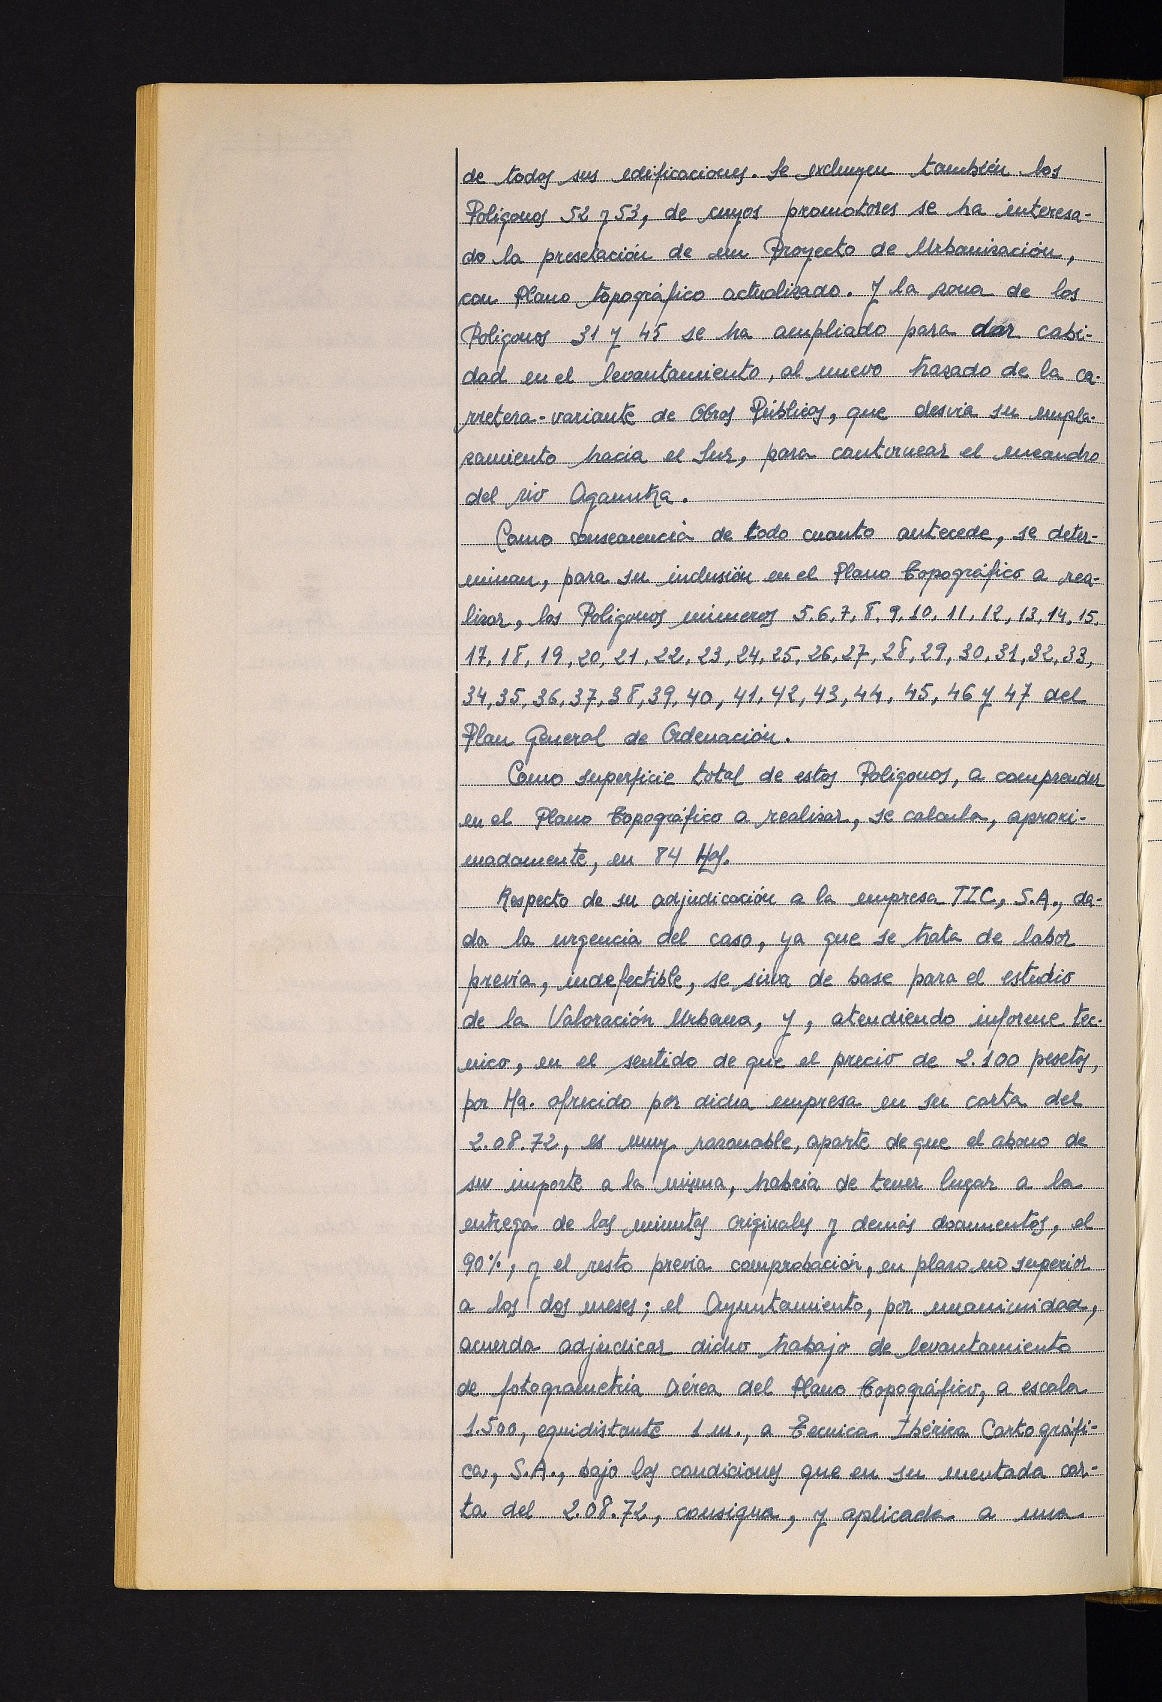 de todas sus edificaciones. Se excluyen también los
Poligonos 52 y 53, de cuyos promotores se ha interesa-
do la presetación de un Proyecto de Urbanización,
con Plano topográfico actualizado. Y la zona de los
Poligonos 31 y 45 se ha ampliado para dar cabi-
dad en el levantamiento, al nuevo trazado de la ca-
rretera-variante de Obras Públicas, que desvia su empla-
zamiento hacia el Sur, para contornear el meandro
del rio Agauntza.
Como consecuencia de todo cuanto antecede, se deter-
minan, para su inclusión en el Plano Topográfico a rea-
lizar, los Poligonos números 5.6,7,8,9,10,11,12,13,14,15,
17,18,19,20,21,22,23,24,25,26,27,28,29,30,31,32,33,
34,35,36,37,38,39,40,41,42,43,44,45,46 y 47 del
Plan General de Ordenación.
Como superficie total de estos Poligonos, a comprender
en el Plano Topográfico a realizar, se calcula, aproxi-
madamente, en 84 Has.
Respecto de su adjudicación a la empresa TIC, S.A., da-
da la urgencia del caso, ya que se trata de labor
previa, indefectible, se sirva de base para el estudio
de la Valoración Urbana, y, atendiendo informe tec-
nico, en el sentido de que el precio de 2.100 pesetas,
por Ha. ofrecido por dicha empresa en su carta del
2.08.72, es muy razonable, aparte de que el abono de
su importe a la misma, habria de tener lugar a la
entrega de las minutas originales y demás documentos, el
90%, y el resto previa comprobación, en plazo no superior
a los dos meses; el Ayuntamiento, por unanimidad,
acuerda adjudicar dicho trabajo de levantamiento
de fotogrametria aérea del Plano Topográfico, a escala
1.500, equidistante 1 m., a Tecnica Ibérica Cartográfi-
ca, S.A., bajo las condiciones que en su mentada car-
ta del 2.08.72, consigna, y aplicada a una